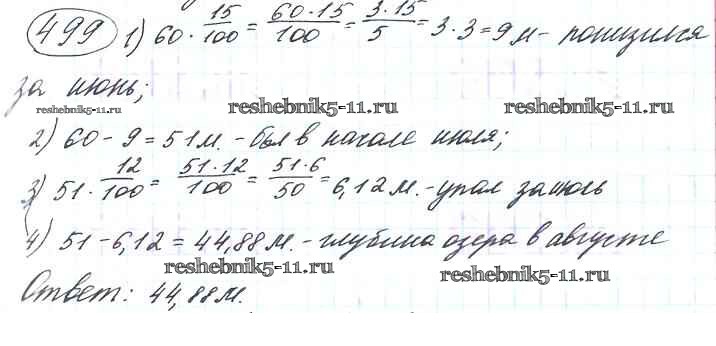 499 1) 60 · 15/100 = 60·15/100 = 3·15/5 = 3·3 = 9 м - понизился
за июнь;
reshebnik5-11.ru reshebnik5-11.ru reshebnik5-11.ru
2) 60 - 9 = 51 м. - был в начале июля;
3) 51 · 12/100 = 51·12/100 = 51·6/50 = 6,12 м. - упал за июль
4) 51 - 6,12 = 44,88 м. - глубина озера в августе
reshebnik5-11.ru reshebnik5-11.ru
Ответ: 44,88 м.